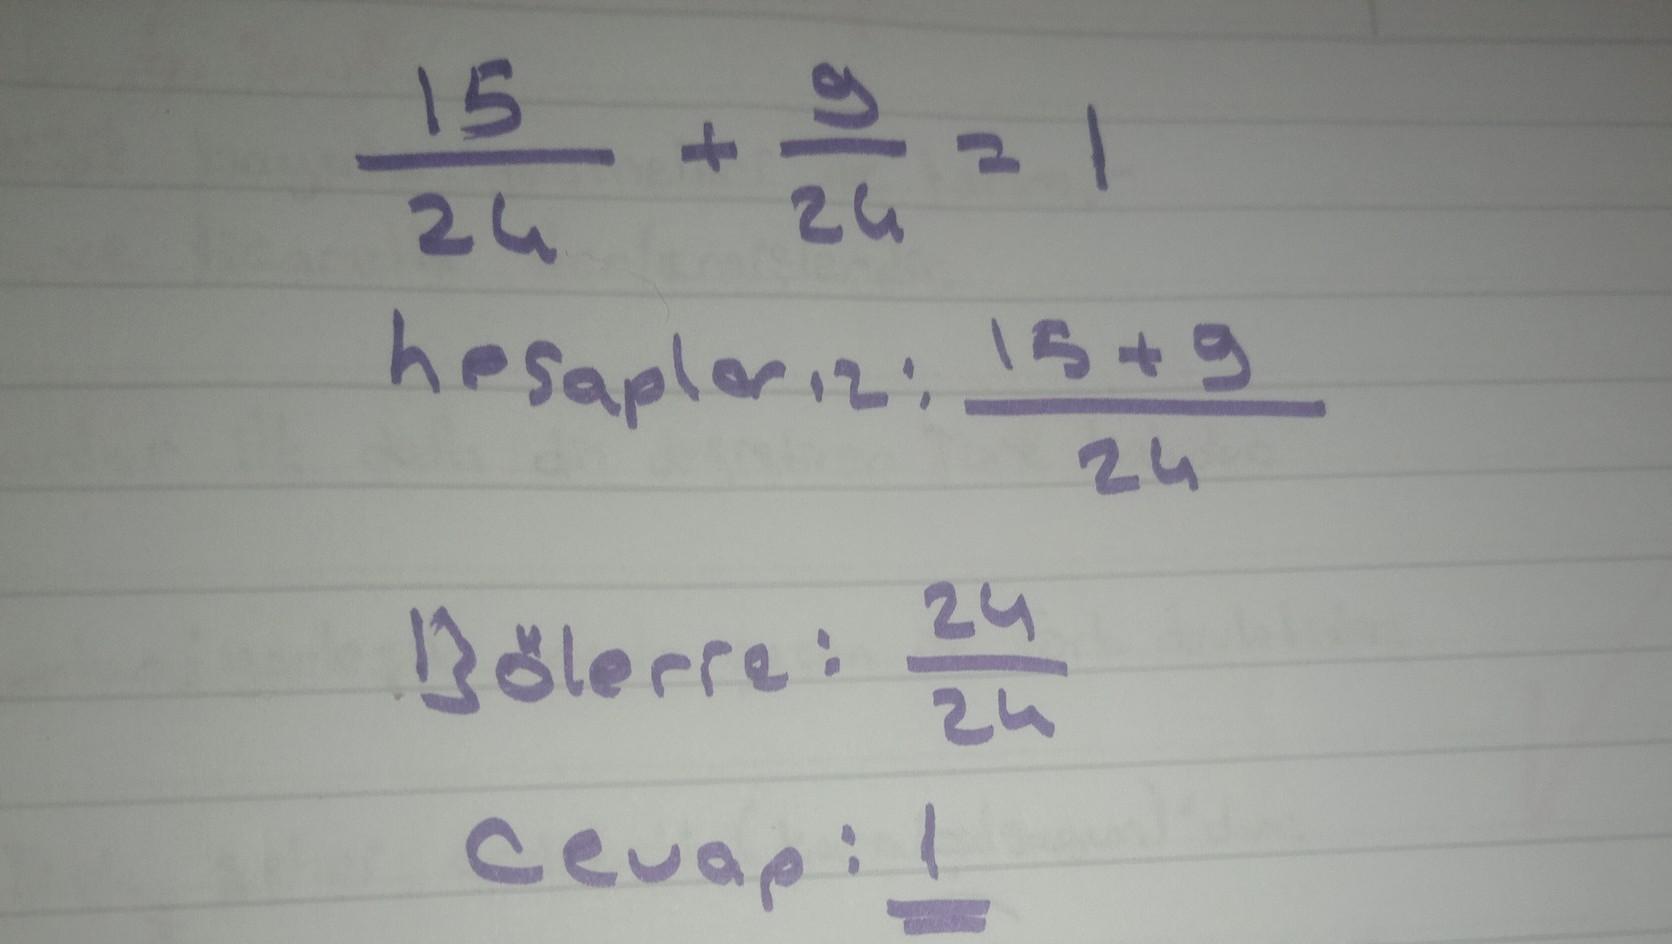 15/24 + 9/24 = 1
hesaplarız: 15+9/24
Bölerse: 24/24
Cevap: 1